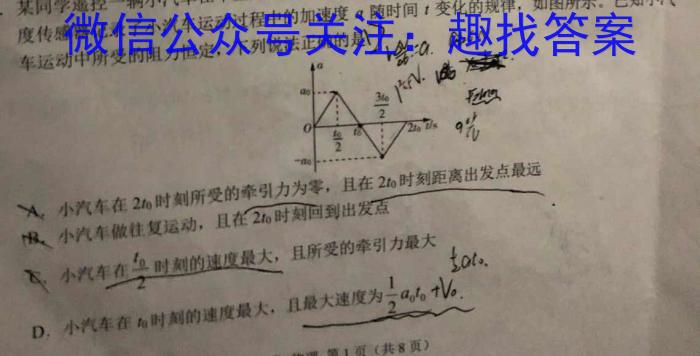 某同学遥控一辆小汽车
车运动过程中的加速度 a 随时间 t 变化的规律，如图所示。已知小汽
度传感
微信公众号关注：趣找答案
车运动中所受的阻力恒定，下列说法正确的是
a
a₀
3t₀/2
O
t₀/2
t₀
2t₀
t/s
-a₀
A. 小汽车在 2t₀ 时刻所受的牵引力为零，且在 2t₀ 时刻距离出发点最远
B. 小汽车做往复运动，且在 2t₀ 时刻回到出发点
C. 小汽车在 t₀/2 时刻的速度最大，且所受的牵引力最大
½at₀.
D. 小汽车在 t₀ 时刻的速度最大，且最大速度为 ½a₀t₀ +V₀.
第1页（共8页）